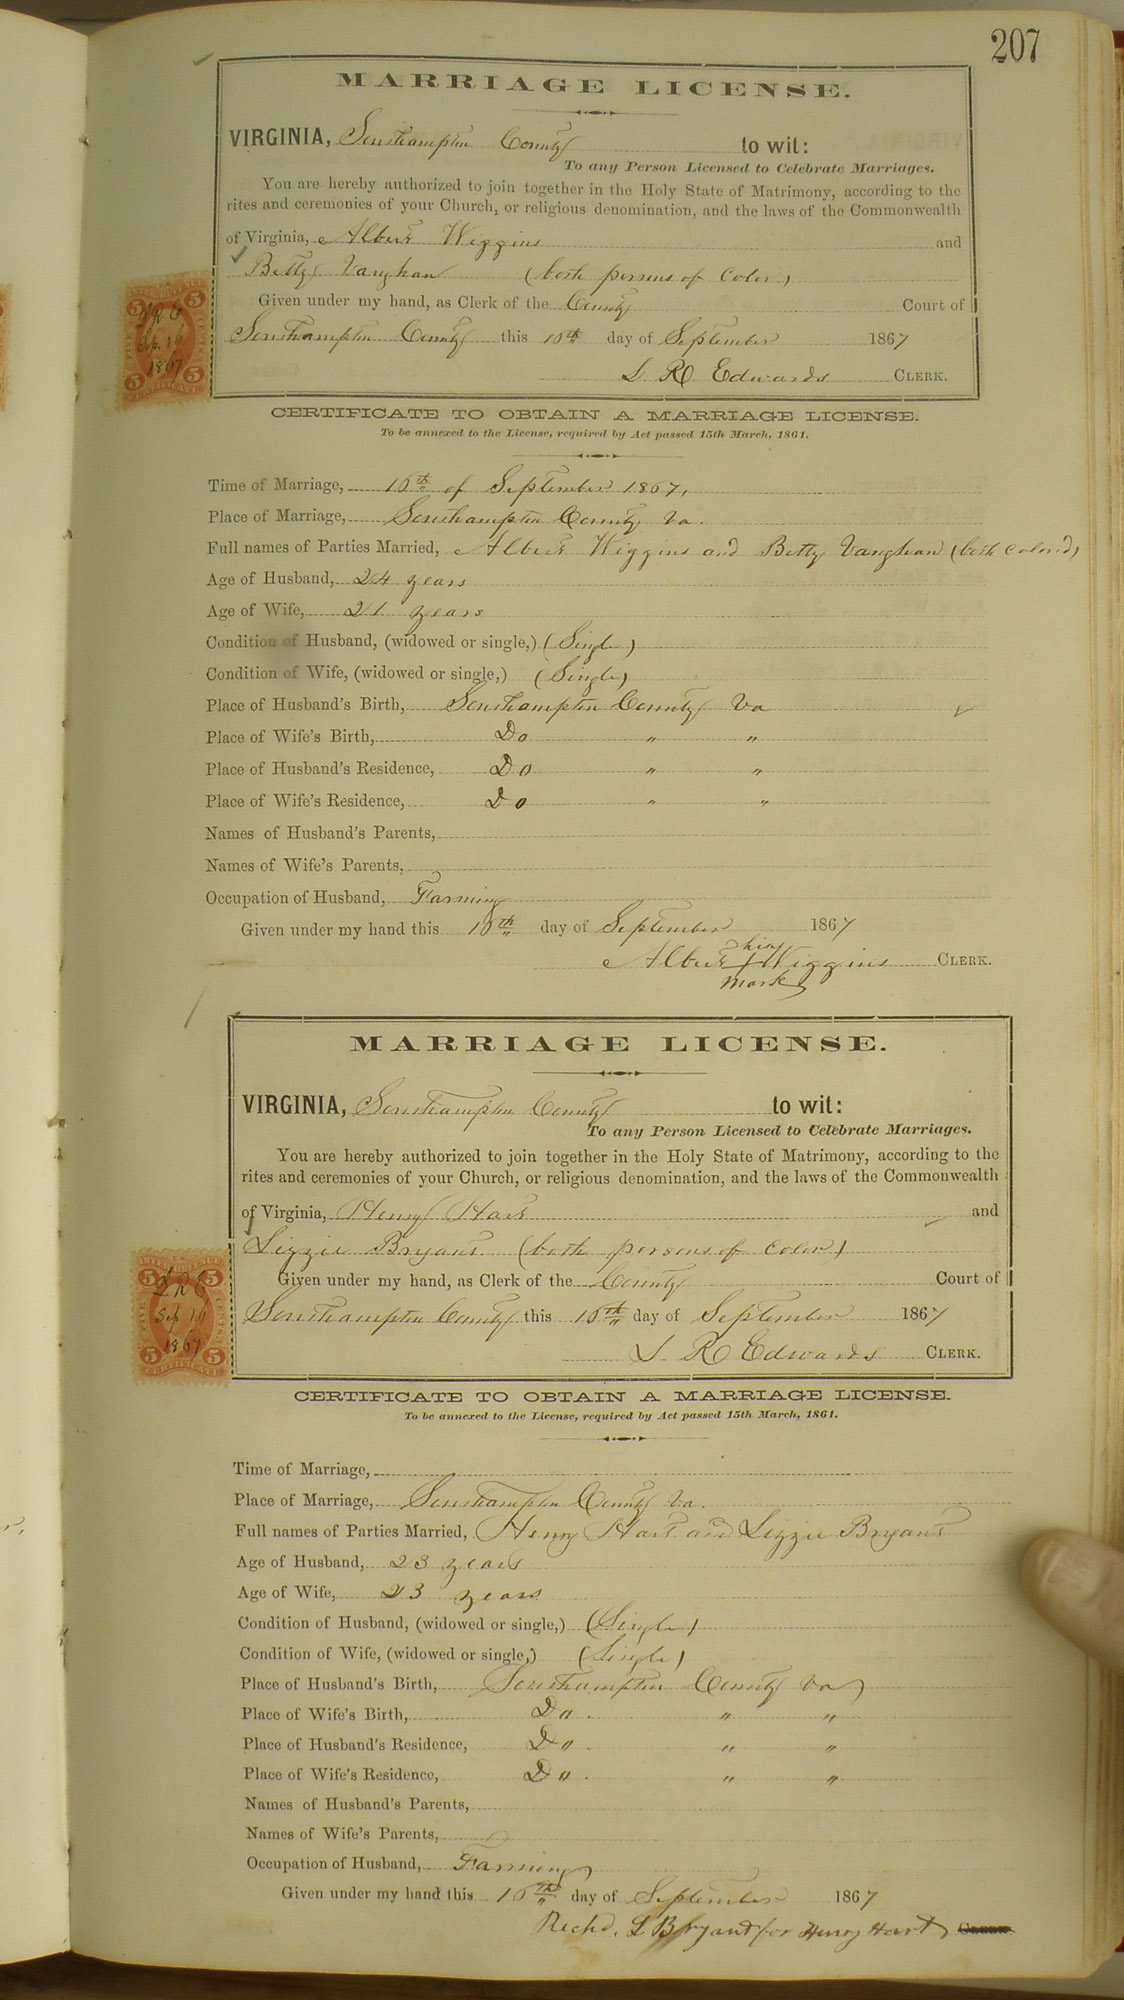 207
MARRIAGE LICENSE.
VIRGINIA, Southampton County to wit:
To any Person Licensed to Celebrate Marriages.
You are hereby authorized to join together in the Holy State of Matrimony, according to the
rites and ceremonies of your Church, or religious denomination, and the laws of the Commonwealth
of Virginia, Albert Wiggins and
Betty Vaughan (both persons of Color)
Given under my hand, as Clerk of the County Court of
Southampton County this 16th day of September 1867
L. R. Edwards CLERK.
5 5
LRE
Sep. 16
1867
5 5
CERTIFICATE
CERTIFICATE TO OBTAIN A MARRIAGE LICENSE.
To be annexed to the License, required by Act passed 15th March, 1861.
Time of Marriage, 16th of September 1867,
Place of Marriage, Southampton County Va.
Full names of Parties Married, Albert Wiggins and Betty Vaughan (both colored)
Age of Husband, 24 years
Age of Wife, 21 years
Condition of Husband, (widowed or single,) (Single)
Condition of Wife, (widowed or single,) (Single)
Place of Husband's Birth, Southampton County Va
Place of Wife's Birth, Do " "
Place of Husband's Residence, Do " "
Place of Wife's Residence, Do " "
Names of Husband's Parents,
Names of Wife's Parents,
Occupation of Husband, Farming
Given under my hand this 16th day of September 1867
his
Albert X Wiggins CLERK.
mark
MARRIAGE LICENSE.
VIRGINIA, Southampton County to wit:
To any Person Licensed to Celebrate Marriages.
You are hereby authorized to join together in the Holy State of Matrimony, according to the
rites and ceremonies of your Church, or religious denomination, and the laws of the Commonwealth
of Virginia, Henry Hart and
Lizzie Bryant (both persons of Color)
Given under my hand, as Clerk of the County Court of
Southampton County this 16th day of September 1867
L. R. Edwards CLERK.
5 5
LRE
Sep 16
1867
5 5
CERTIFICATE
CERTIFICATE TO OBTAIN A MARRIAGE LICENSE.
To be annexed to the License, required by Act passed 15th March, 1861.
Time of Marriage,
Place of Marriage, Southampton County Va.
Full names of Parties Married, Henry Hart and Lizzie Bryant
Age of Husband, 23 years
Age of Wife, 23 years
Condition of Husband, (widowed or single,) (Single)
Condition of Wife, (widowed or single,) (Single)
Place of Husband's Birth, Southampton County Va
Place of Wife's Birth, Do. " "
Place of Husband's Residence, Do. " "
Place of Wife's Residence, Do. " "
Names of Husband's Parents,
Names of Wife's Parents,
Occupation of Husband, Farming
Given under my hand this 16th day of September 1867
Richd. L Bryant for Henry Hart CLERK.